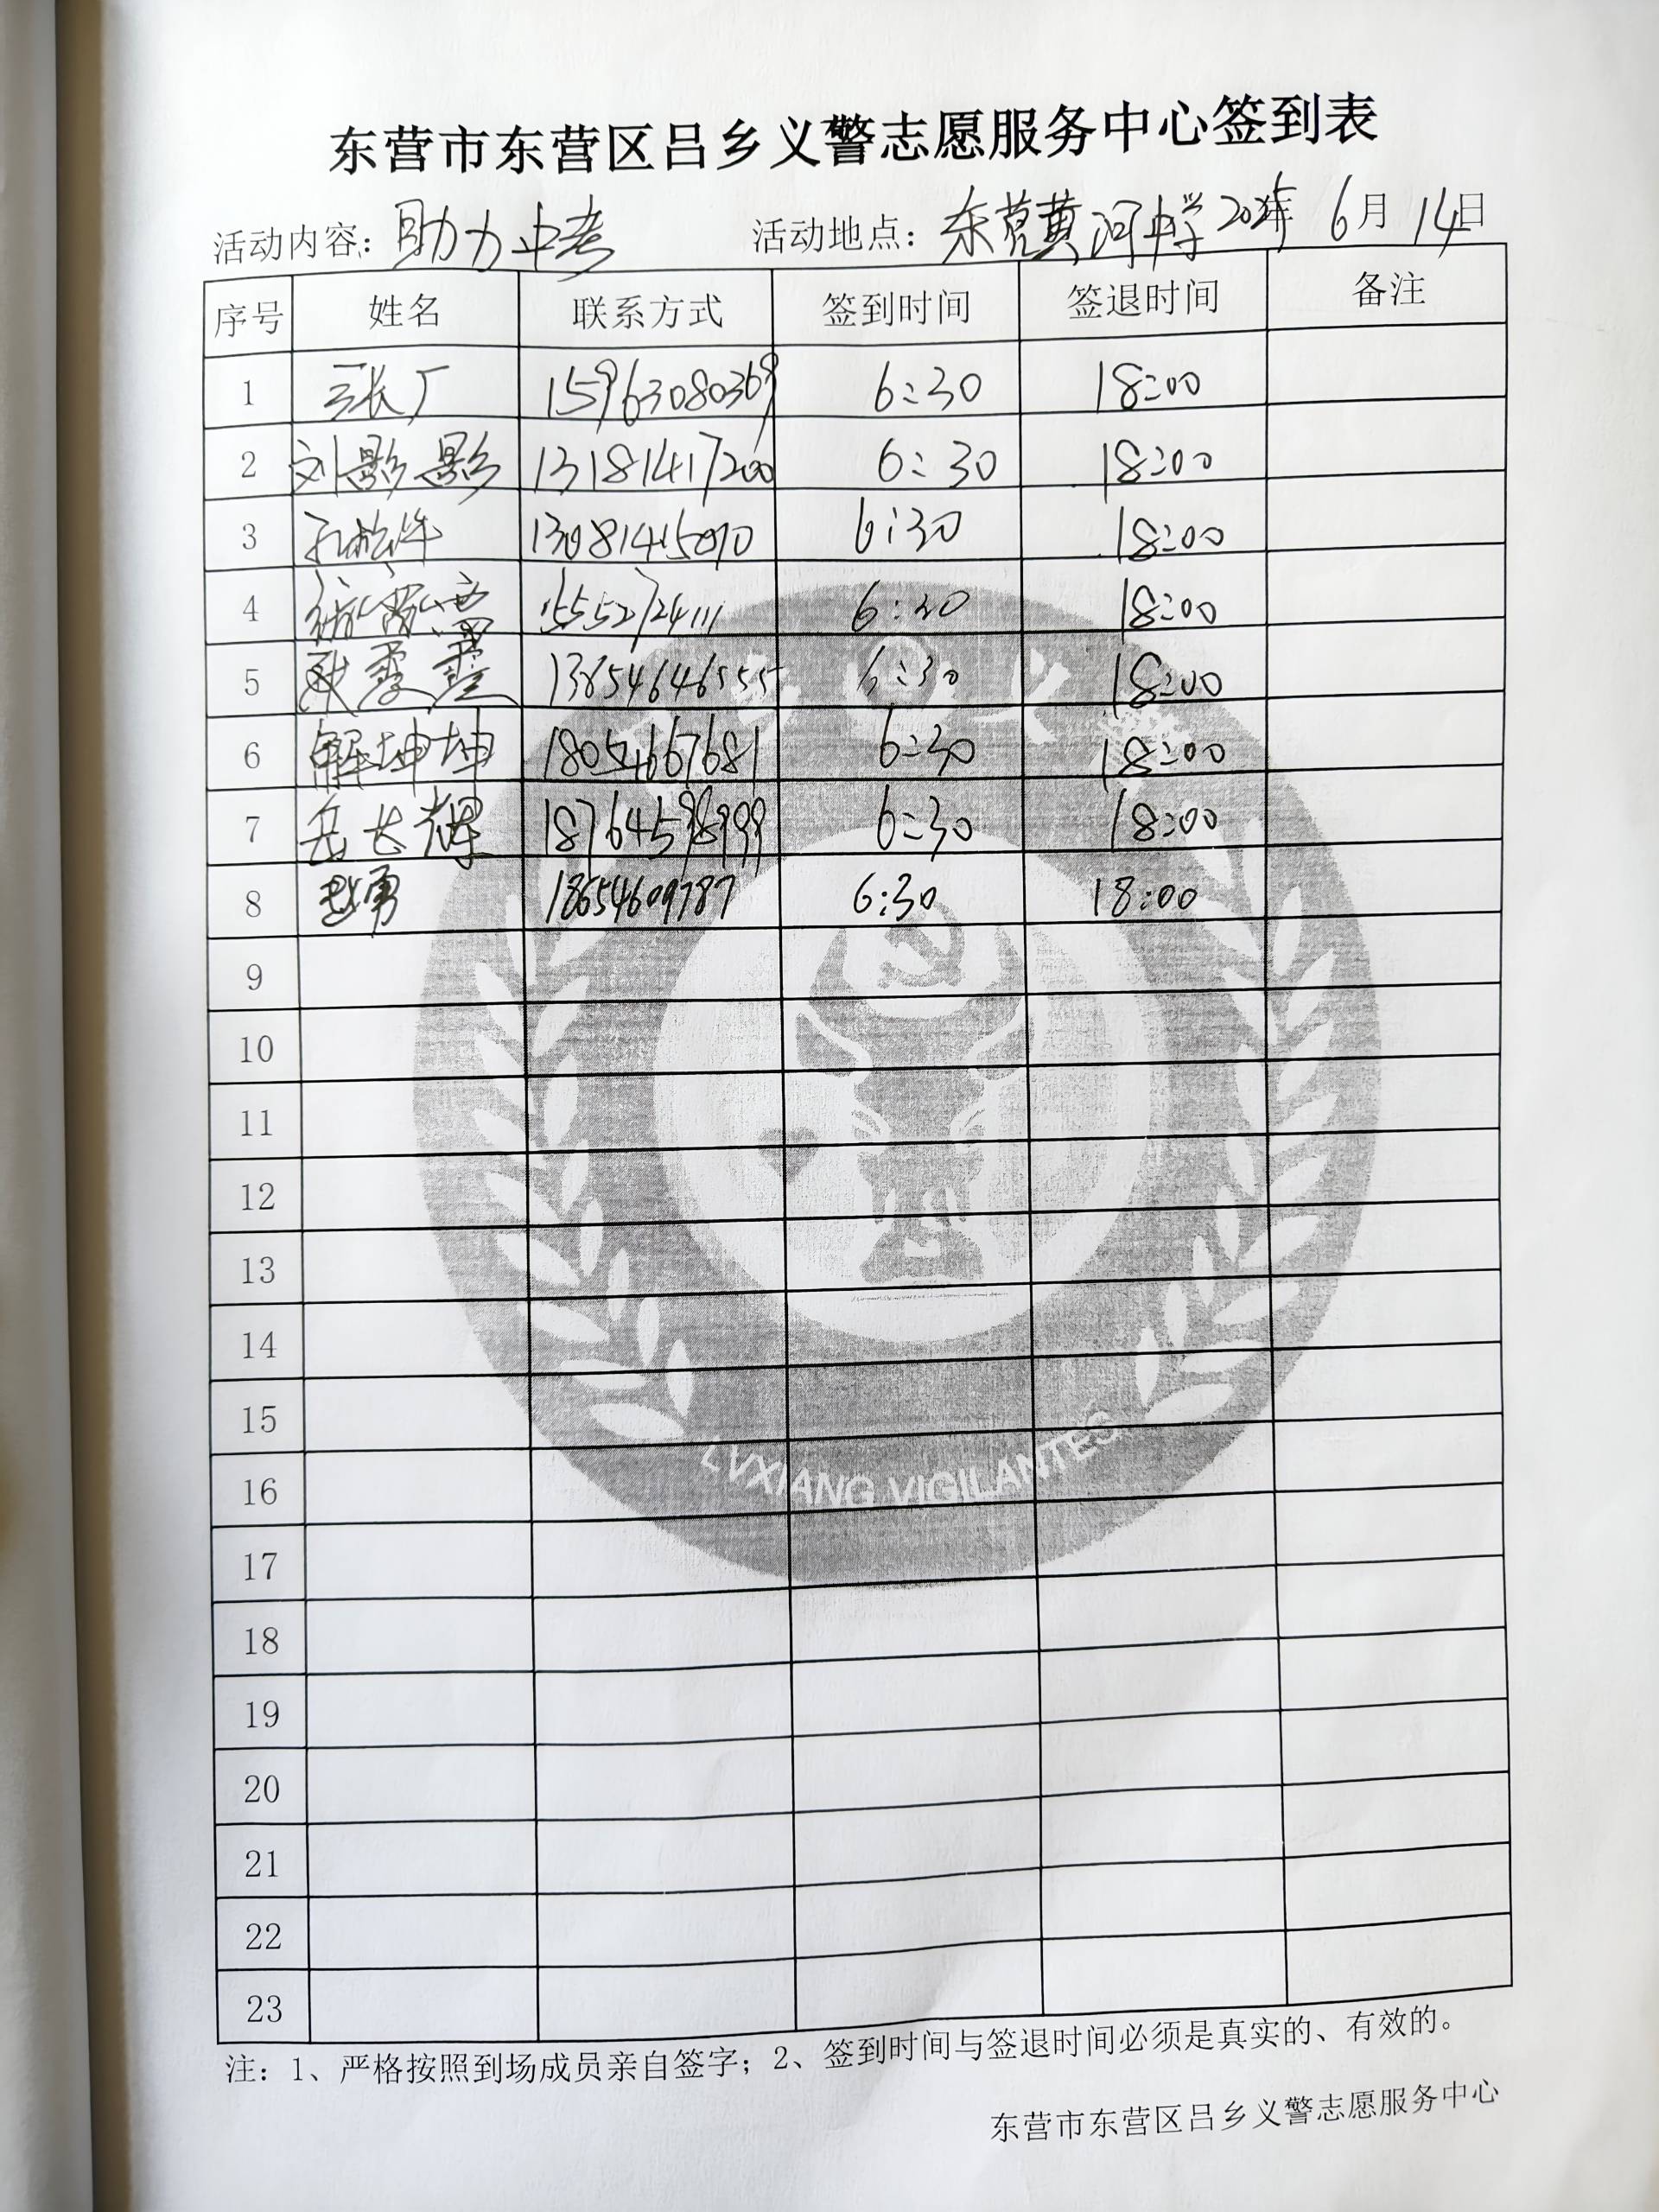 东营市东营区吕乡义警志愿服务中心签到表
活动内容：助力中考 活动地点：东营黄河中学 6月14日
序号 姓名 联系方式 签到时间 签退时间 备注
1 15963080369 6:30 18:00
2 刘影影 13181417200 6:30 18:00
3 6:30 18:00
4 15552724111 6:30 18:00
5 13854646555 6:30 18:00
6 解坤坤 18054667681 6:30 18:00
7 岳长辉 18764598999 6:30 18:00
8 赵勇 18654609787 6:30 18:00
9
10
11
12
13
14
15
16
17
18
19
20
21
22
23
LVXIANG VIGILANTES
注：1、严格按照到场成员亲自签字；2、签到时间与签退时间必须是真实的、有效的。
东营市东营区吕乡义警志愿服务中心